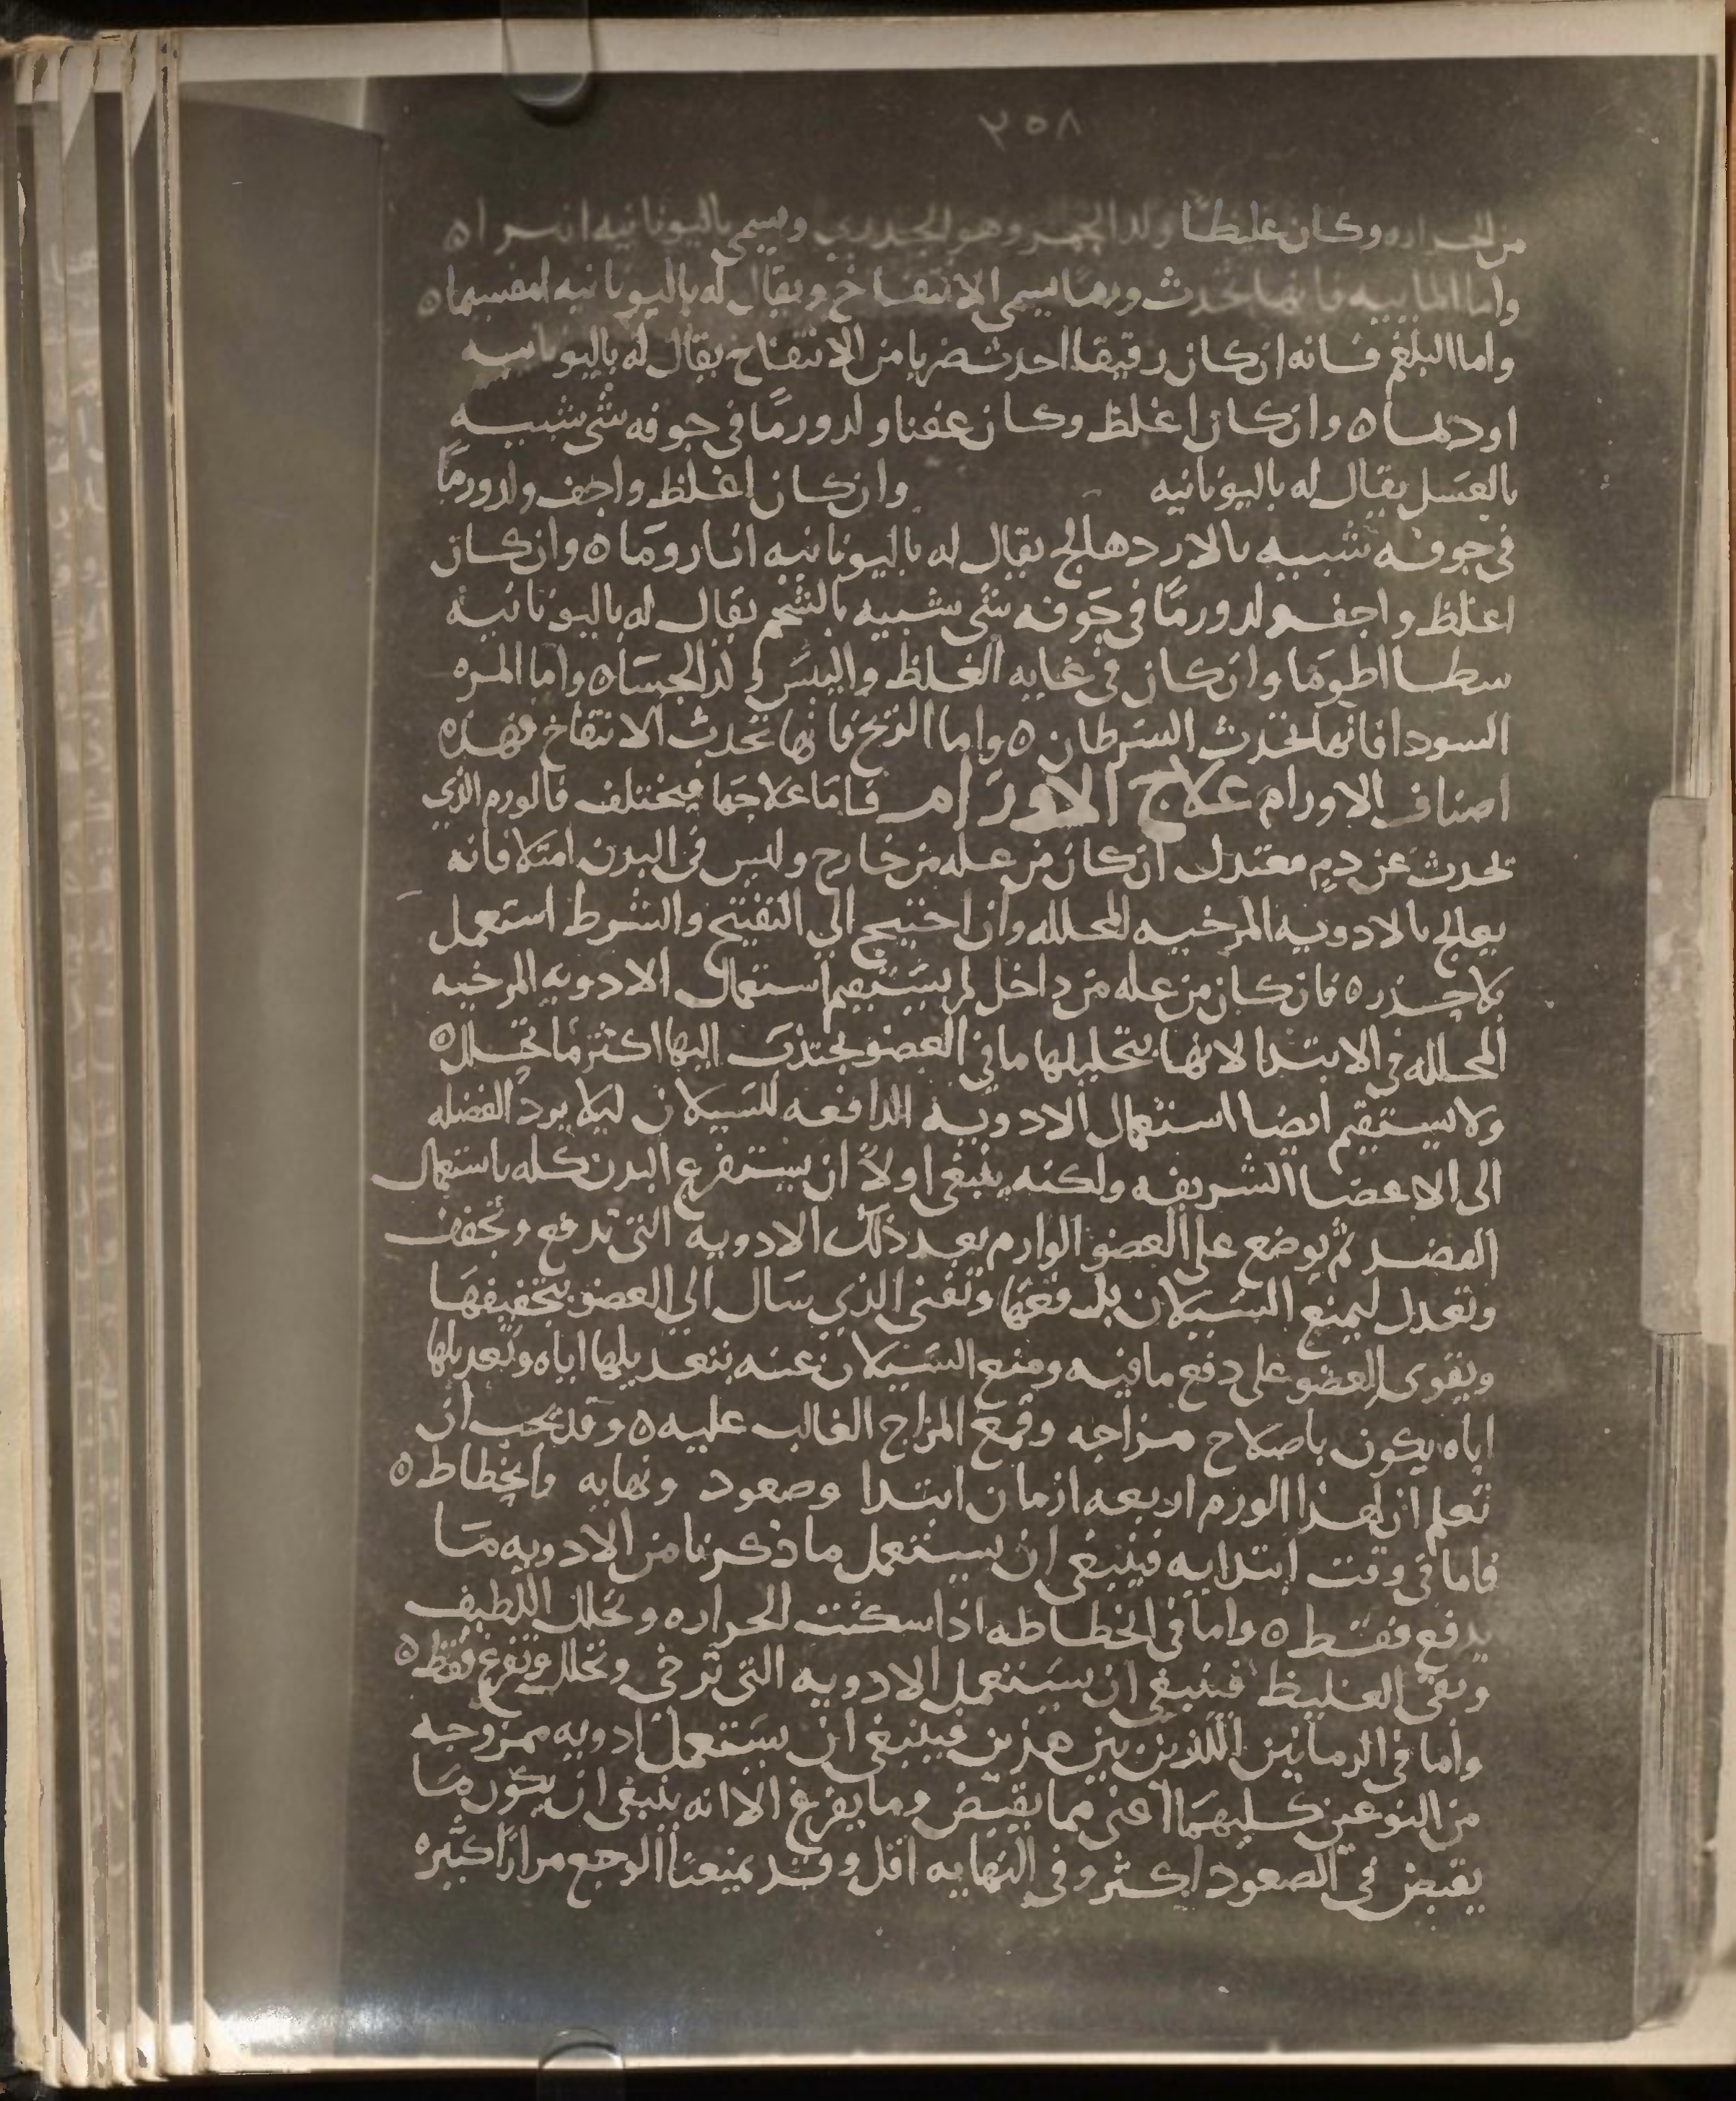 ٣٥٨
من الحراره وكان غليظا ولد الجمر وهو الجدري ويسمى باليونانيه انسرا ه
واما المابيه فانها تحدث ورما يسمى الانتفاخ ويقال له باليونانيه امفسيما ه
واما البلغم فانه ان كان رقيقا احدث ضربا من الانتفاخ يقال له باليونانيه
اودهما ه وان كان اغلظ وكان عفنا ولد ورمًا في جوفه شي شبيه
بالعسل يقال له باليونانيه وان كان اغلظ واجف ولد ورمًا
في جوفه شبيه بالاردهالج يقال له باليونانيه اثاروما ه وان كان
اغلظ واجف ولد ورمًا في جوفه شي شبيه بالشحم يقال له باليونانيه
سطااطوما وان كان في غايه الغلظ واليبس ولد الجسا ه واما المره
السودا فانها تحدث السرطان ه واما الريح فانها تحدث الانتفاخ فهذه
اصناف الاورام علاج الاورام فاما علاجها فيختلف فالورم الذي
تحدث عن دم معتدل ان كان من عله من خارج وليس في البدن امتلا فانه
يعالج بالادويه المرخيه المحلله وان احتيج الي التفتيح والشرط استعمل
بلا حذر ه فان كان من عله من داخل لم يستقيم استعمال الادويه المرخيه
المحلله في الابتدا لانها بتحليلها ما في العضو تجتذب اليها اكثر ما تحلل ه
ولا يستقيم ايضا استعمال الادويه الدافعه للسيلان ليلا يرد الفضله
الى الاعضا الشريفه ولكنه ينبغي اولاً ان يستفرغ البدن كله باستعمال
الفصد ثم يوضع على العضو الوارم بعد ذلك الادويه التي تدفع وتجفف
وتعدل ليمنع السيلان بدفعها وتفنى الذي سال الي العضو بتجفيفها
ويقوى العضو على دفع ما فيه ومنع السيلان عنه بتعديلها اياه وتعديلها
اياه يكون باصلاح مزاجه وقمع المزاج الغالب عليه ه وقد يجب ان
تعلم ان لهذا الورم اربعه ازمان ابتدا وصعود ونهايه وانحطاط ه
فاما في وقت ابتدايه فينبغي ان يستعمل ما ذكرنا من الادويه ما
يدفع فقط ه واما في انحطاطه اذا سكنت الحراره وتحلل اللطيف
وبقي الغليظ فينبغي ان يستعمل الادويه التي ترخي وتحلل وتفرغ فقط ه
واما في الزمانين اللذين بين هذين فينبغي ان يستعمل ادويه ممزوجه
من النوعين كليهما اعني مما يقبض وما يفرغ الا انه ينبغي ان يكون ما
يقبض في الصعود اكثر وفي النهايه اقل وقد يمنعنا الوجع مرارًا كثيره